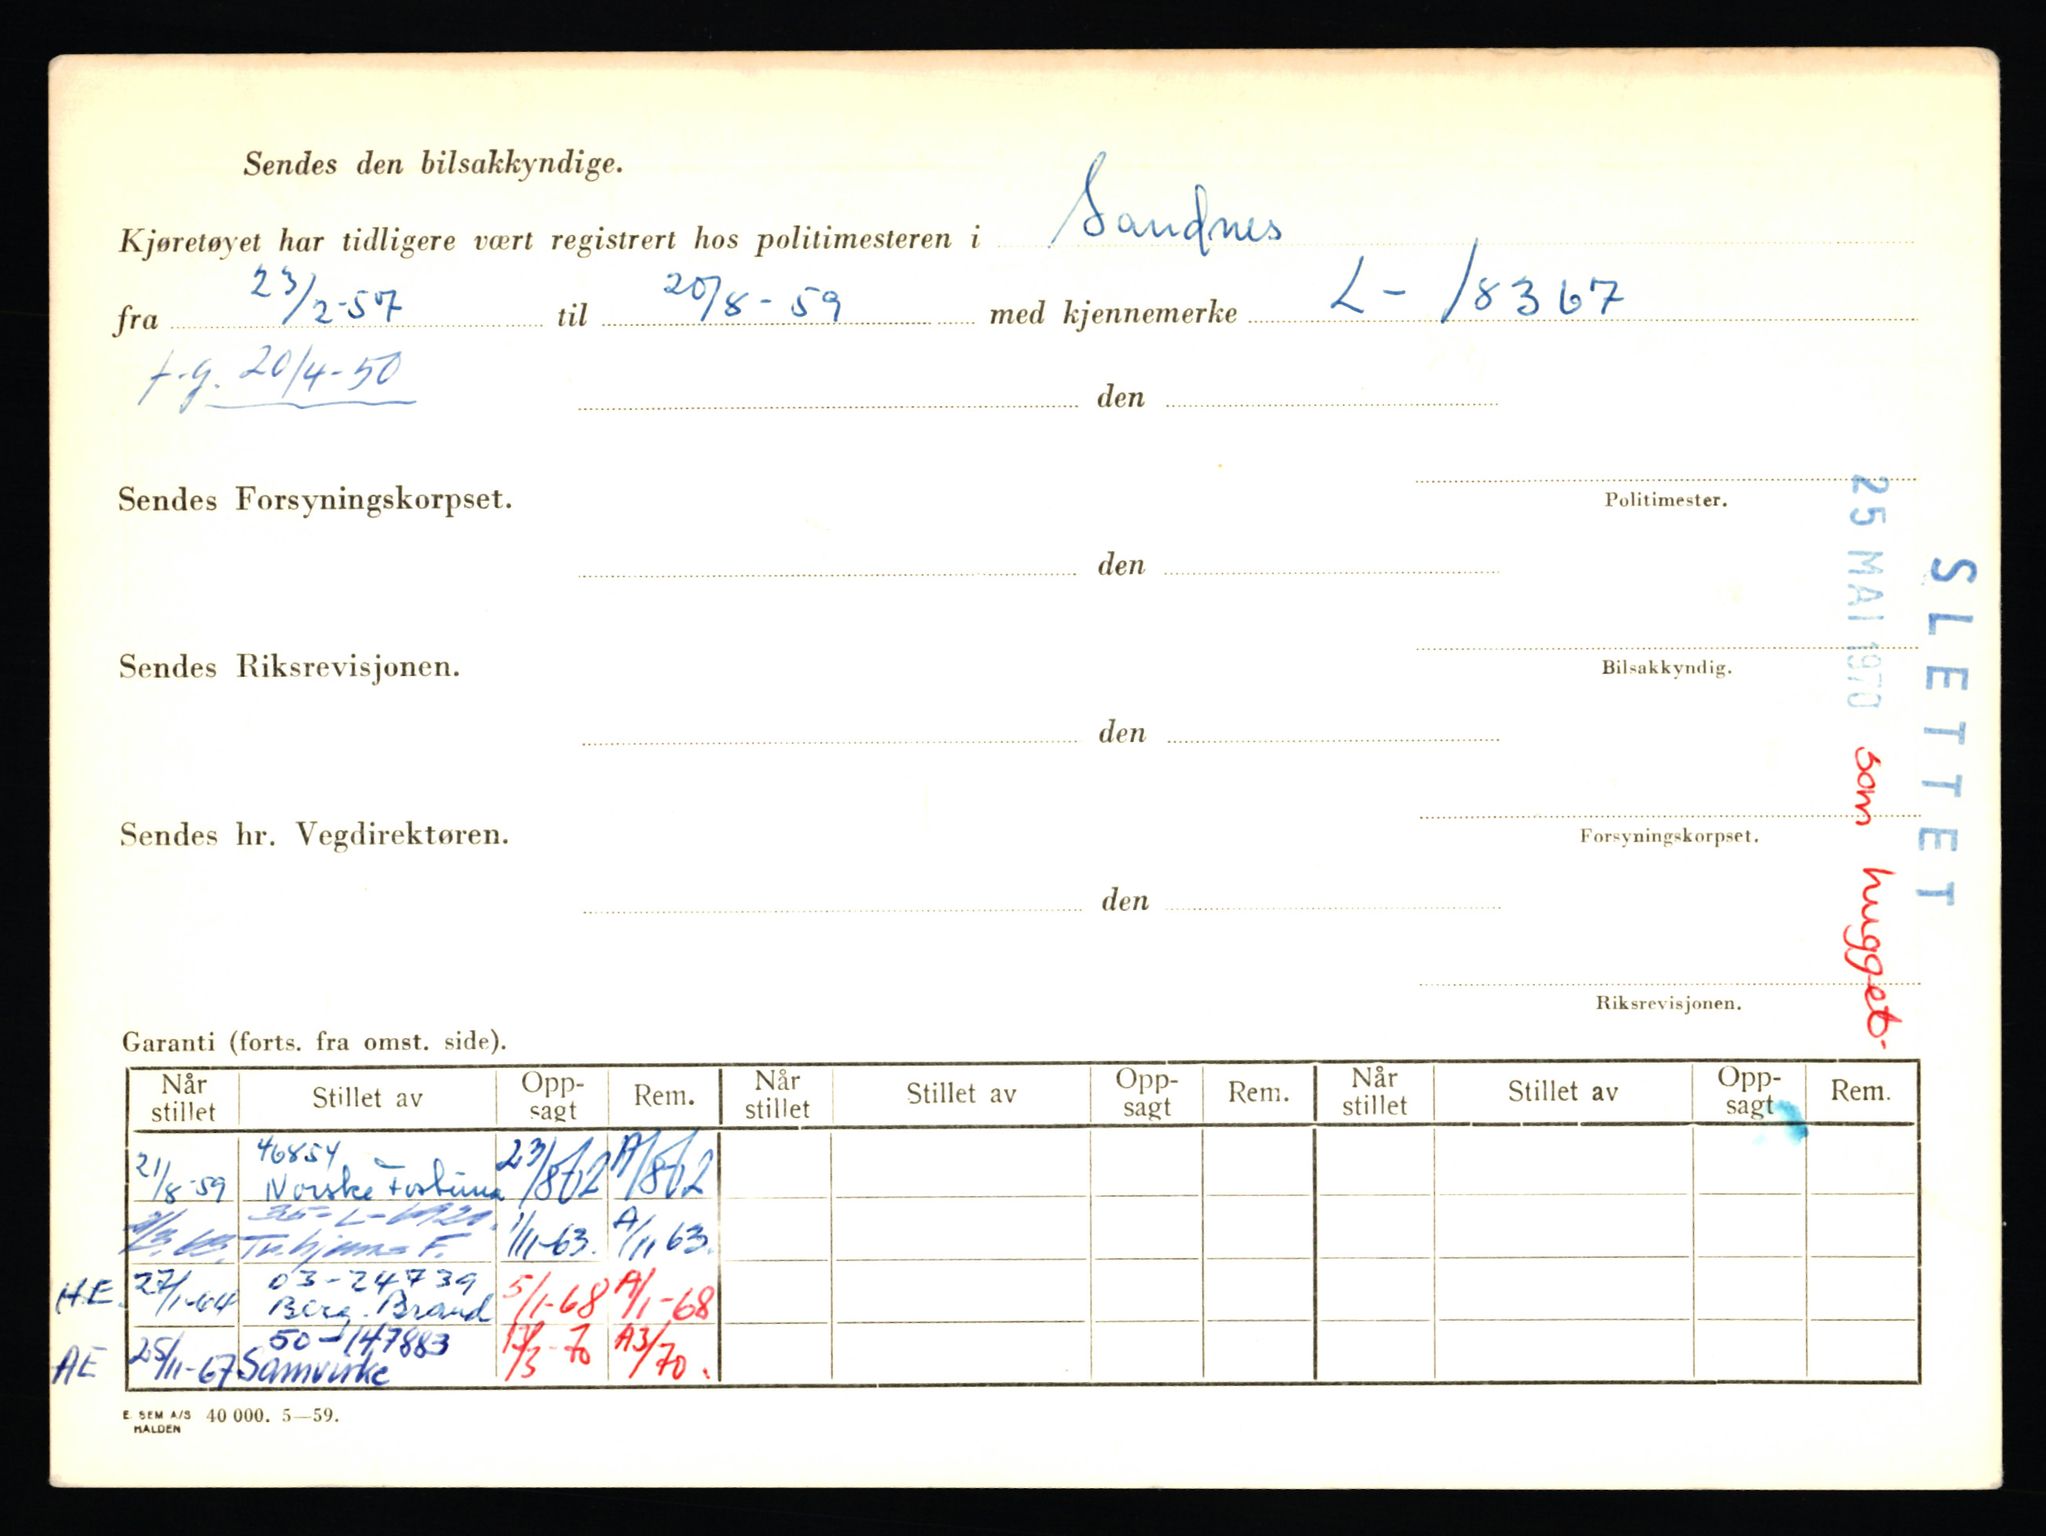 Sendes den bilsakkyndige.
Kjøretøyet har tidligere vært registrert hos politimesteren i Sandnes
fra 23/2-57 til 20/8-59 med kjennemerke L-18367
f.g. 20/4-50
den
Sendes Forsyningskorpset.
Politimester.
den
Sendes Riksrevisjonen.
Bilsakkyndig.
den
Sendes hr. Vegdirektøren.
Forsyningskorpset.
den
Riksrevisjonen.
SLETTET
25 MAI 1970 som hugget.
Garanti (forts. fra omst. side).
Når stillet Stillet av Opp-sagt Rem. Når stillet Stillet av Opp-sagt Rem. Når stillet Stillet av Opp-sagt Rem.
46854
21/8-59 Norske Fortuna 23/8-62 A/8-62
1/11-63. A/11 63.
03-24739
H.E. 27/1-64 Berg. Brand 5/1-68 A/1-68
50-147883
AE 25/11-67 Samvirke A3/70.
E. SEM A/S 40 000. 5—59.
HALDEN